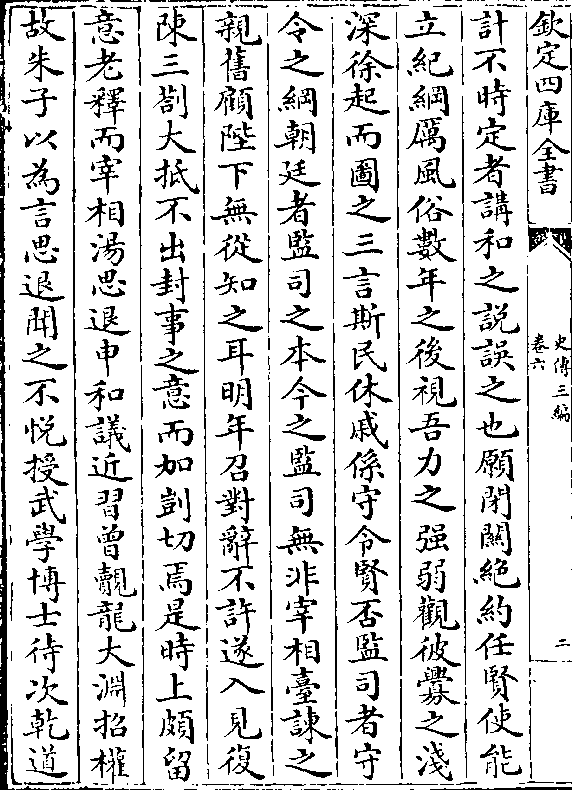 欽定四庫全書
史傳三編
卷六
二
計不時定者講和之説誤之也願閉關絶約任賢使能
立紀綱厲風俗數年之後視吾力之强弱觀彼釁之淺
深徐起而圖之三言斯民休戚係守令賢否監司者守
令之綱朝廷者監司之本今之監司無非宰相臺諫之
親舊顧陛下無從知之耳明年召對辭不許遂入見復
陳三劄大抵不出封事之意而加剴切焉是時上頗留
意老釋而宰相湯思退申和議近習曾覿龍大淵招權
故朱子以為言思退聞之不悦授武學博士待次乾道